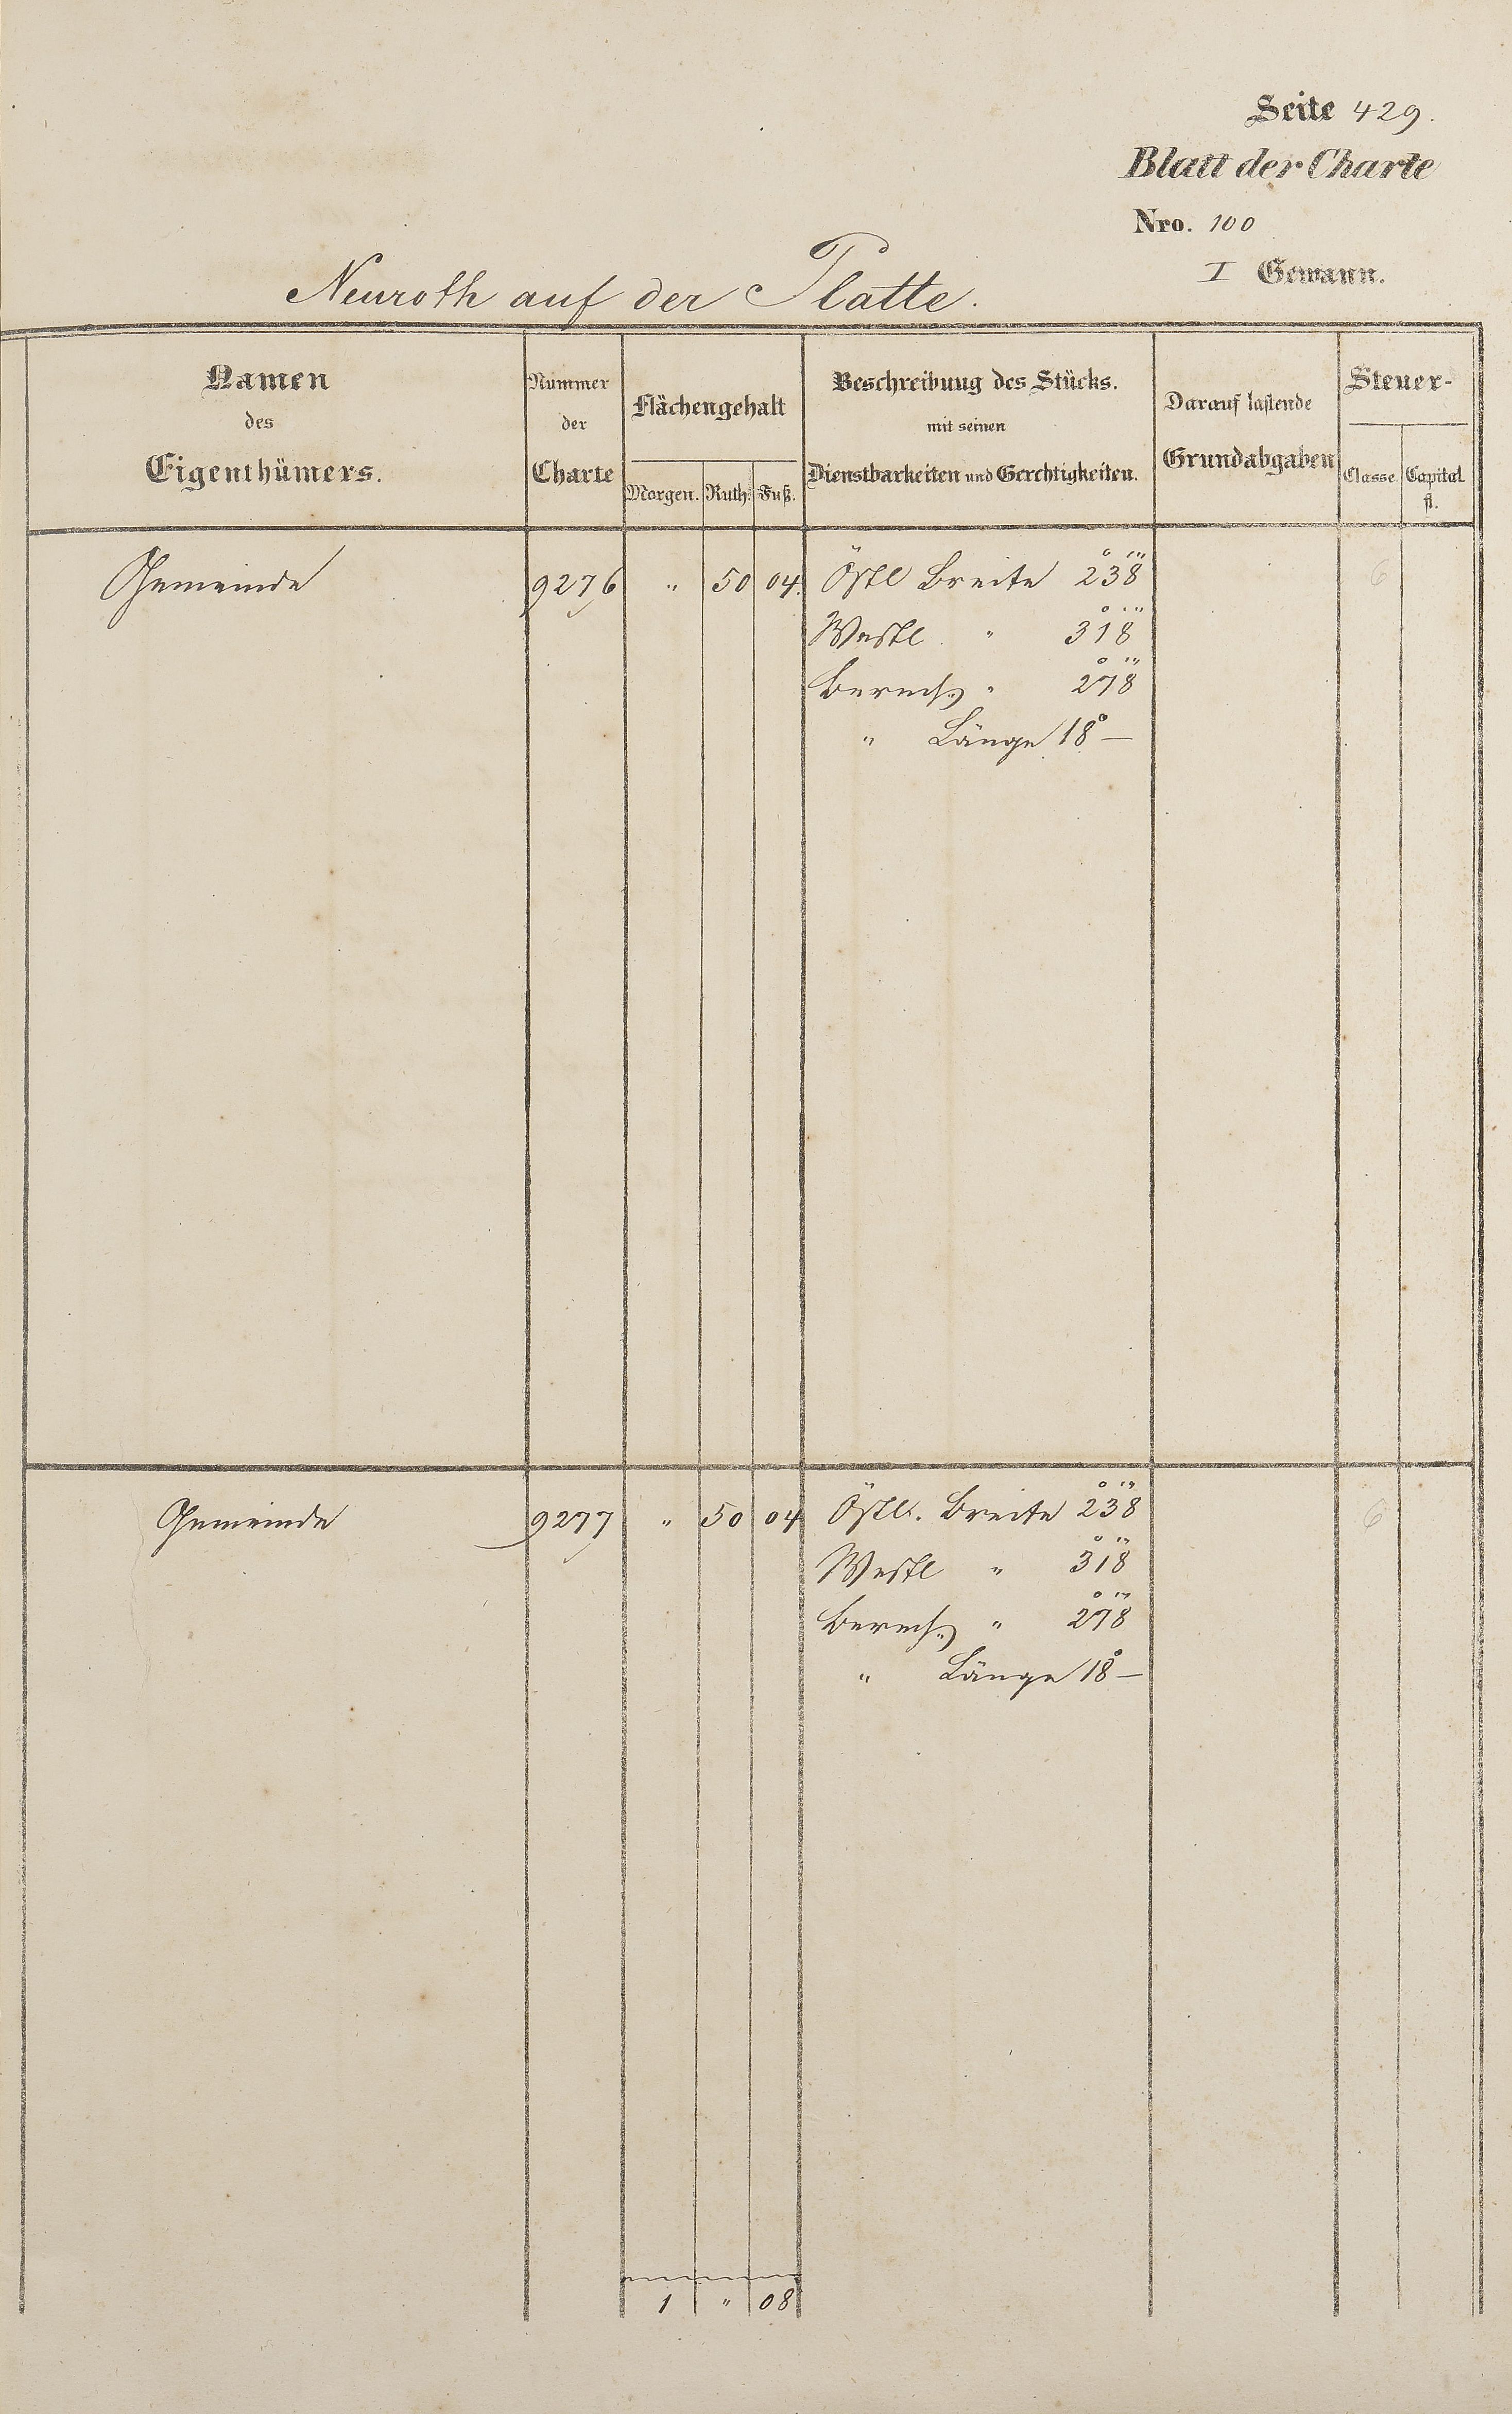 Seite 429.
Blatt der Charte
Nro. 100
I Gewann.
Neuroth auf der Platte.
Namen des Eigenthümers.
Nummer der Charte
Flächengehalt
Morgen. Ruth. Fuß.
Beschreibung des Stücks.
mit seinen
Dienstbarkeiten und Gerechtigkeiten.
Darauf lastende
Grundabgaben
Steuer-
Classe Capital
fl.
Gemeinde 9276 " 50 04. Östl Breite 2° 3' 8'' 6
Westl. " 3° 1' 8''
Berech. " 2° 7' 8''
" Länge 18° —
Gemeinde 9277 " 50 04 Östl. Breite 2° 3' 8'' 6
Westl " 3° 1' 8''
Berech. " 2° 7' 8''
" Länge 18° —
1 " 08